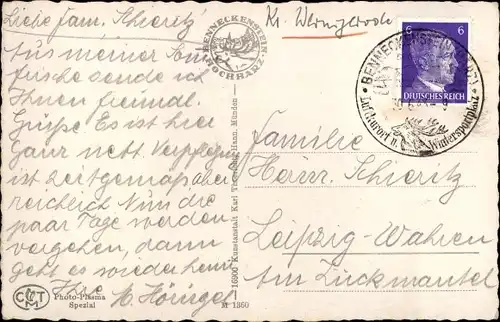 Liebe Fam. Schieritz
Aus meiner Som
frische sende ich
Ihnen freundl.
Grüße Es ist hier
Ganz nett Verpflegen
ist zeitgemäß aber
reichlich Nun die
paar Tage werden
vergehen, dann
geht es wieder heim
Ihre
M. Höringel
CCTM
Photo-Plasma
Spezial
BENNECKENSTEIN
HOCHHARZ
16000 Kunstanstalt Karl Hann. Münden
M 1360
Kr. Wernigerode
6 6
DEUTSCHES REICH
BENNECKENSTEIN
Luftkurort u. Wintersportplatz
Familie
Herrn Schieritz
Leipzig-Wahren
Am Zuckmantel